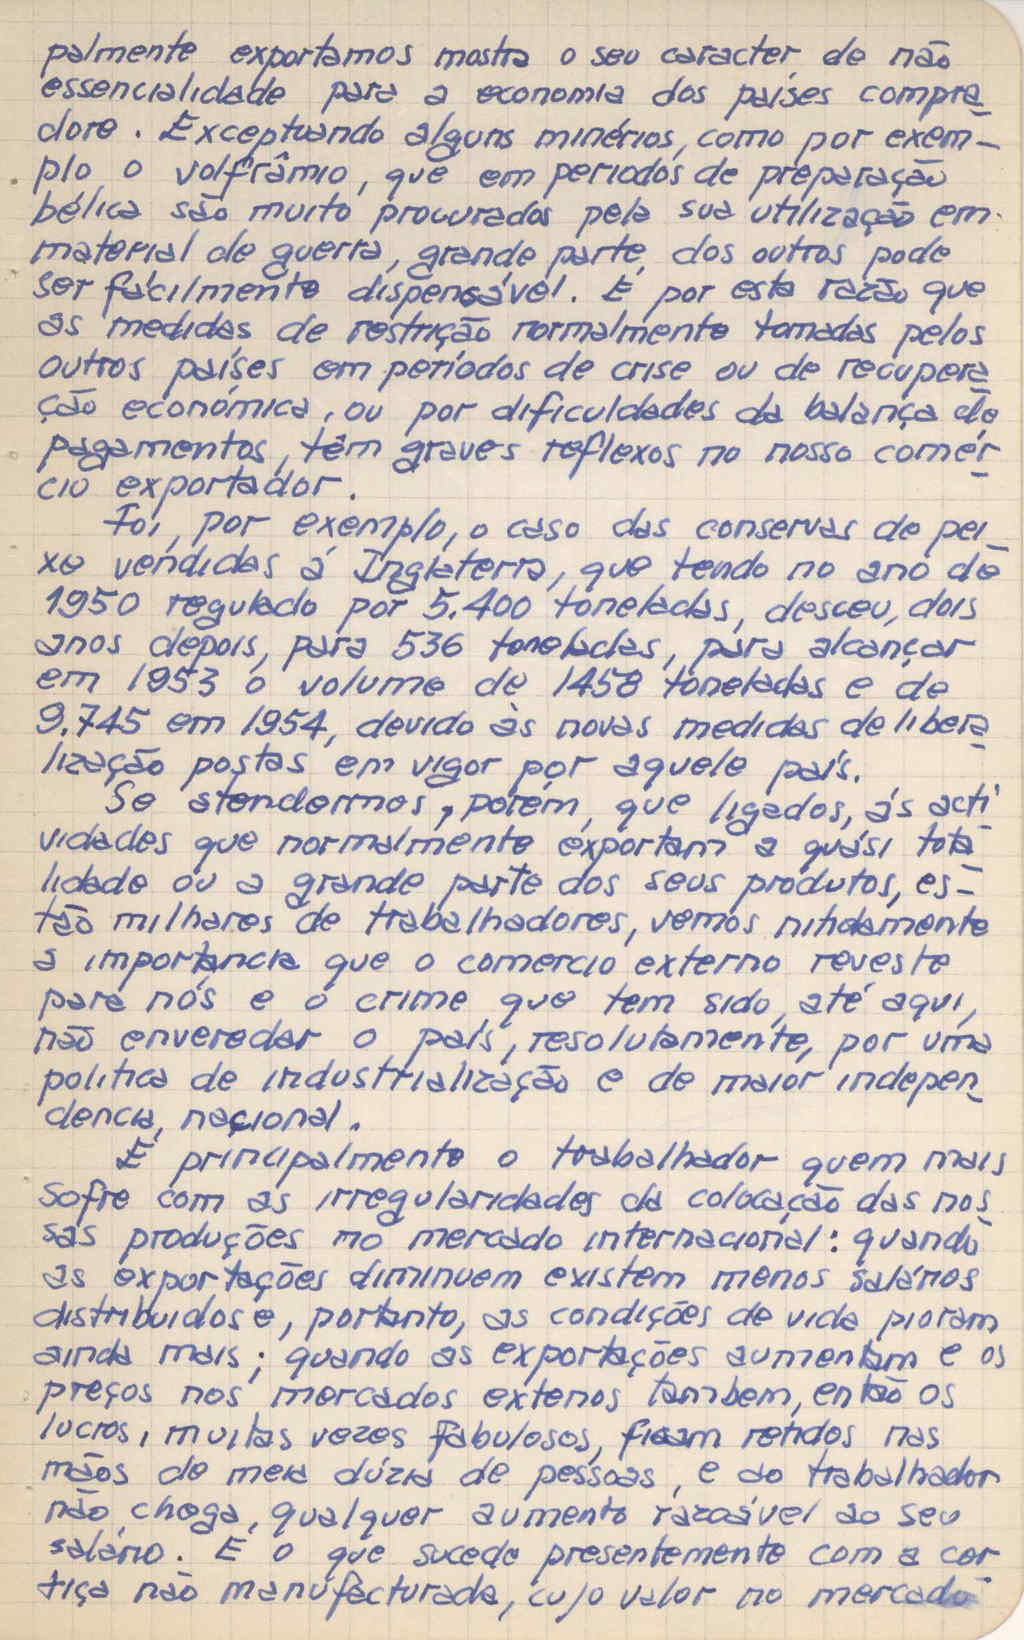 palmente exportamos mostra o seu caracter de não
essencialidade para a economia dos países compra
dore. Exceptuando alguns minérios, como por exem-
plo o volfrâmio, que em periodos de preparação
bélica são muito procurados pela sua utilização em
material de guerra, grande parte dos outros pode
ser fácilmente dispensável. E por esta razão que
as medidas de restrição normalmente tomadas pelos
outros países em períodos de crise ou de recupera
ção económica, ou por dificuldades da balança de
pagamentos, têm graves reflexos no nosso comér
cio exportador.
Foi, por exemplo, o caso das conservas de pei
xe vendidas á Inglaterra, que tendo no ano de
1950 regulado por 5.400 toneladas, desceu, dois
anos depois, para 536 toneladas, para alcançar
em 1953 o volume de 1458 toneladas e de
9.745 em 1954, devido às novas medidas de libera
lização postas em vigor por aquele país.
Se atendermos, porém, que ligados, ás acti
vidades que normalmente exportam a quási tota
lidade ou a grande parte dos seus produtos, es-
tão milhares de trabalhadores, vemos nitidamente
a importancia que o comercio externo reveste
para nós e o crime que tem sido, até aqui,
não enveredar o país, resolutamente, por uma
politica de industrialização e de maior indepen
dencia nacional.
É principalmente o trabalhador quem mais
sofre com as irregularidades da colocação das nos
sas produções no mercado internacional: quando
as exportações diminuem existem menos salários
distribuidos e, portanto, as condições de vida pioram
ainda mais; quando as exportações aumentam e os
preços nos mercados extenos tambem, então os
lucros, muitas vezes fabulosos, ficam retidos nas
mãos de meia dúzia de pessoas, e ao trabalhador
não chega qualquer aumento razoável ao seu
salário. E o que sucede presentemente com a cor
tiça não manufacturada, cujo valor no mercado